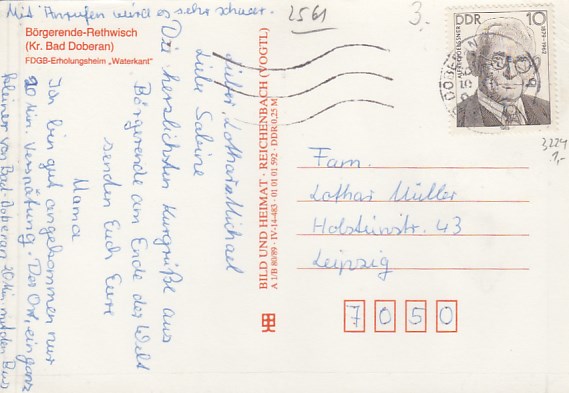 Mit Anrufen wird es sehr schwer.
2561
3.
Börgerende-Rethwisch
(Kr. Bad Doberan)
FDGB-Erholungsheim „Waterkant"
Lieber Lothar + Michael
Liebe Sabine
Die herzlichsten Kurgrüße aus
Börgerende am Ende der Welt
senden Euch Eure
Mama
Ich bin gut angekommen nur
20 Min. Verspätung. Der Ort, ein ganz
kleiner von Bad-Doberan 20 Min. mit den Bus
BILD UND HEIMAT · REICHENBACH (VOGTL)
A 1/B 80/89 · IV-14-483 · 01 01 01 592 · DDR 0,25 M
DDR 10
3224
1,-
Fam.
Lothar Müller
Holsteinstr. 43
Leipzig
7050